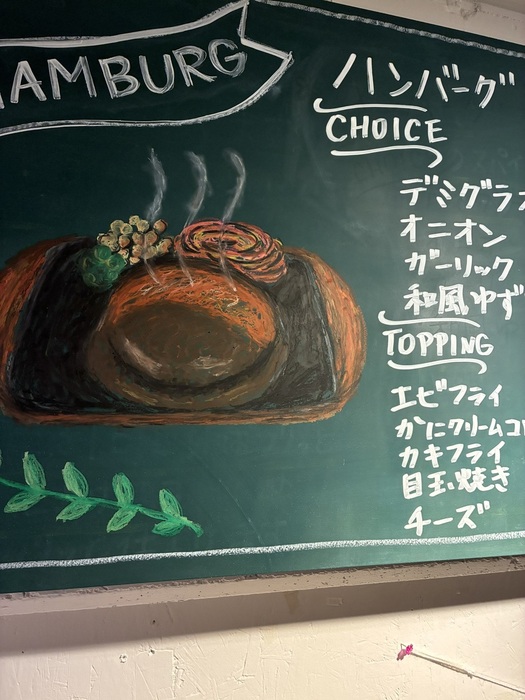 HAMBURG
ハンバーグ
CHOICE
デミグラス
オニオン
ガーリック
和風ゆず
TOPPING
エビフライ
かにクリームコ
カキフライ
目玉焼き
チーズ